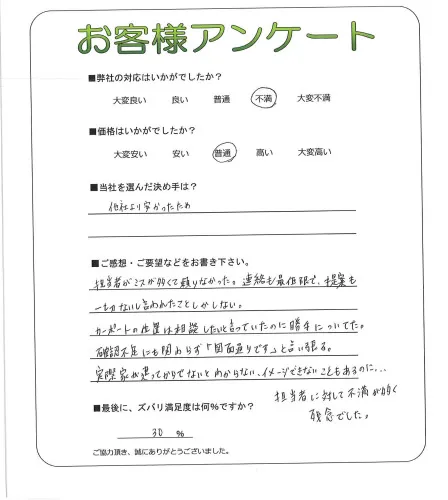 お客様アンケート
■弊社の対応はいかがでしたか？
大変良い 良い 普通 不満 大変不満
■価格はいかがでしたか？
大変安い 安い 普通 高い 大変高い
■当社を選んだ決め手は？
他社より安かったため
■ご感想・ご要望などをお書き下さい。
担当者がミスが多くて頼りなかった。連絡も最低限で、提案も
一切ないし言われたことしかしない。
カーポートの位置は相談したいと言っていたのに勝手についてた。
確認不足にも関わらず「図面通りです」と言い張る。
実際家が建ってからでないとわからない、イメージできないこともあるのに...
担当者に対して不満が多く
残念でした。
■最後に、ズバリ満足度は何%ですか？
30 %
ご協力頂き、誠にありがとうございました。